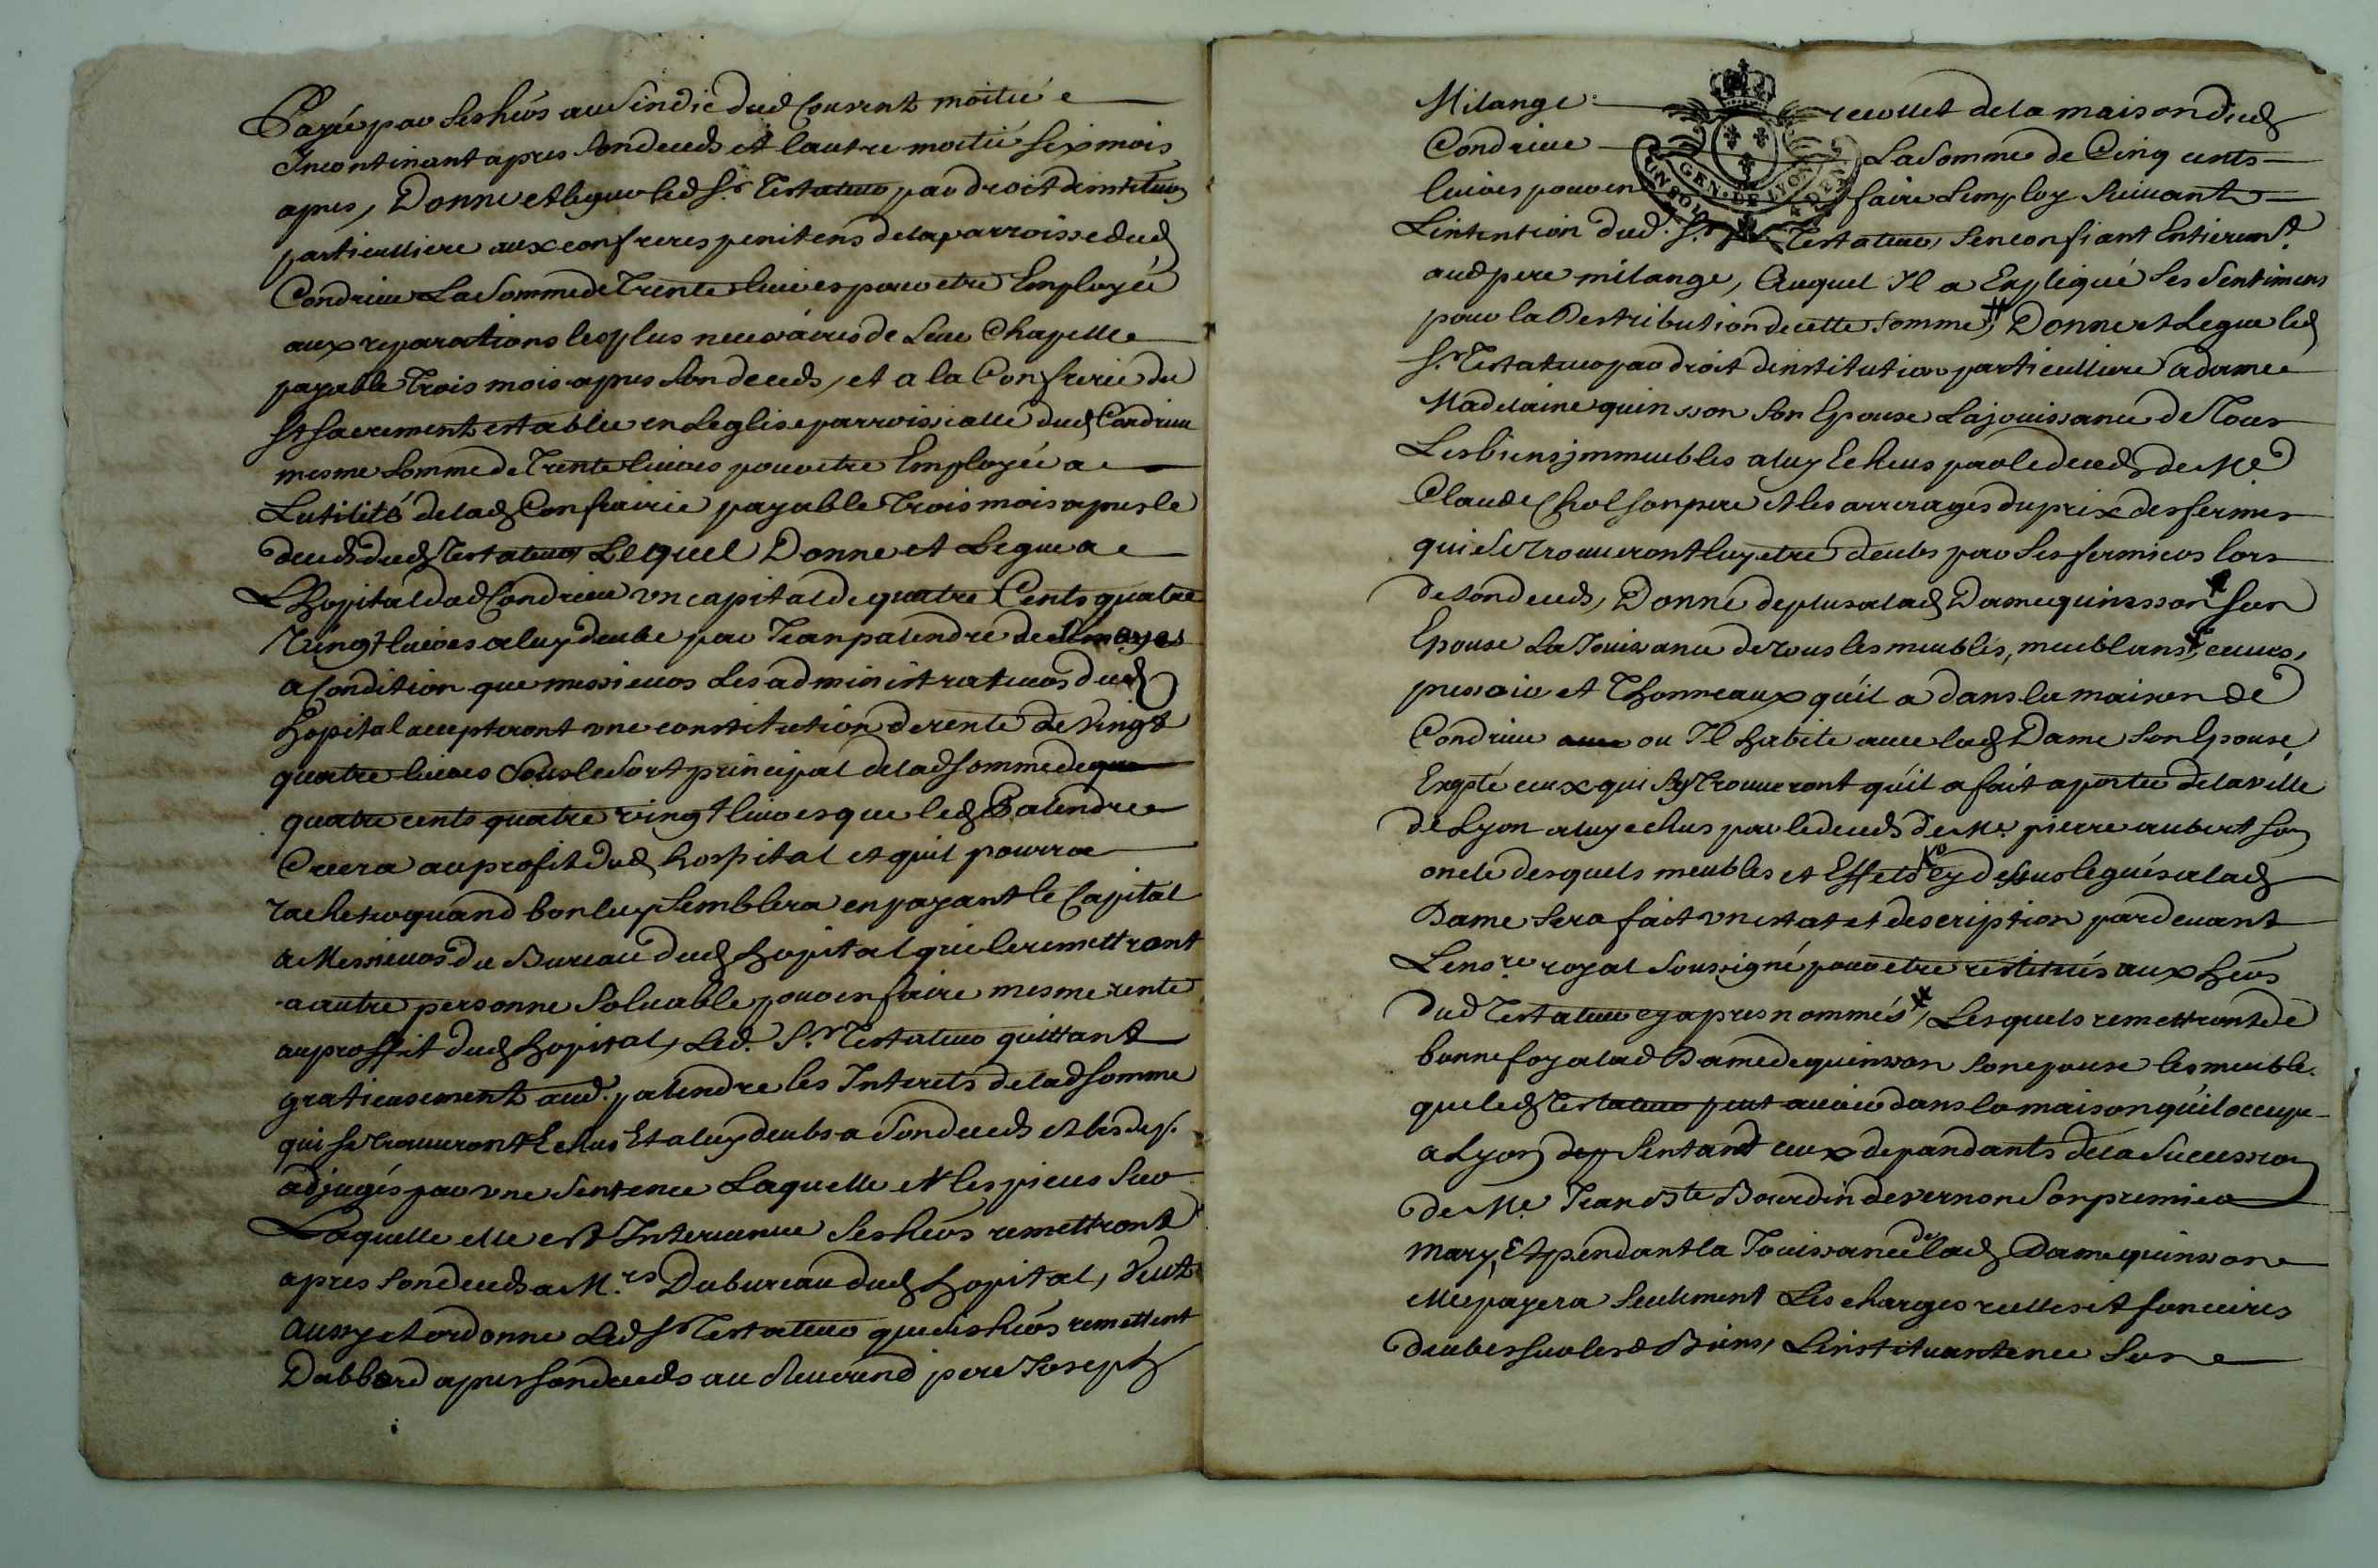 Payée par ses heirs au sindic dud Couvent moitié
Incontinant apres son deceds et lautre moitié six mois
apres, Donne et legue led Sr. Testateur par droit dinstituon
particulliere aux confreres penitens de la parroisse dud
Condrieu La somme de Trente livres pour etre Employée
aux reparations les plus necessaires de Leur Chapelle
payable Trois mois apres son deceds, et a la Confrerie du
St sacrement establie en Leglise parroissialle dud Condrieu
mesme somme de Trente livres pour etre Employée a
Lutilité de lad Confrairie payable Trois mois apres le
deceds dud Testateur Lequel Donne et Legue a
Lhopital dud Condrieu un capital de quatre Cents quatre
Vingt livres a luy deube par Jean palendre
a Condition que messieurs Les administrateurs dud
hopital accepteront une constitution de rente de Vingt
quatre livres sous le sort principal de lad somme de
quatre cents quatre vingt livres que led Palendre
Creera au profit dud hospital et quil pourra
racheter quand bon luy semblera en payant le Capital
a Messieurs du Bureau dud hopital qui le remettront
a autre personne solvable pour en faire mesme rente
au proffit dud hopital, Led. Sr. Testateur quittant
gratieusement aud. palendre les Interets de lad somme
qui se trouveront Echus Et a luy deubs a son deceds et les dep.
adjugés par une sentence Laquelle et les pieces sur
Laquelle elle est Intervenue ses heirs remettront
apres son deceds a M.rs Du bureau dud hopital, Veut
aussy et ordonne Led Sr Testateur que ses heirs remettent
Dabbord apres son deceds au Reverend pere Joseph
Milange recollet de la maison dud
Condrieu La somme de Cinq cents
livres pour en faire Lemploy suivant
Lintention dud. Sr. Testateur, sen confiant Entierem.t
aud pere milange, Auquel Il a Expliqué ses sentimens
pour la Destribution de cette somme, Donne et Legue led
Sr. Testateur par droit dinstitution particulliere a dame
Madelaine quinsson son Epouse La jouissance de Tous
Les biens jmmeubles a luy Echeus par le deceds de Me
Claude Chol son pere et les arrerages du prix des fermes
qui se trouveront luy etre deubs par ses fermiers lors
de son deceds, Donne de plus a lad Dame quinsson son
Epouse La Jouissance de tous les meubles, meublans, cuves,
pressoir et Thonneaux qu'il a dans la maison de
Condrieu ou Il habite avec lad Dame son Epouse,
Exepté ceux qui sy trouveront qu'il a fait aporter de la ville
de Lyon a luy echus par le deceds de Me. pierre aubert son
oncle desquels meubles et Effets cy dessus legués a lad
Dame sera fait un estat et description pardevant
Le no.re royal soussigné pour etre restitués aux heirs
dud Testateur cy apres nommés, Lesquels remettront de
bonne foy a lad Dame de quinson son epouse les meuble
que led Testateur peut avoir dans la maison qu'il occupe
a Lyon sentant ceux dependants de la succession
de Me. Jean Bte Bourdin de vernon son premier
mary, Et pendant la Jouissance de lad Dame quinsson
elle payera seulement Les charges reelles et foncieres
deubes sur lesd Biens, Linstituant en ce son
GEN. DE LYON